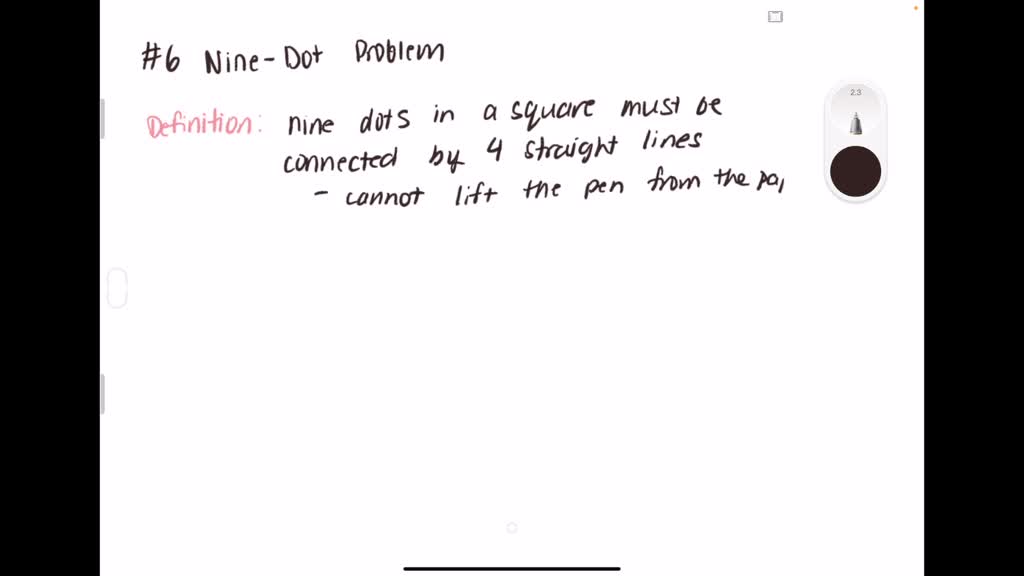 #6 Nine-Dot Problem
Definition: nine dots in a square must be
connected by 4 straight lines
- cannot lift the pen from the
2.3